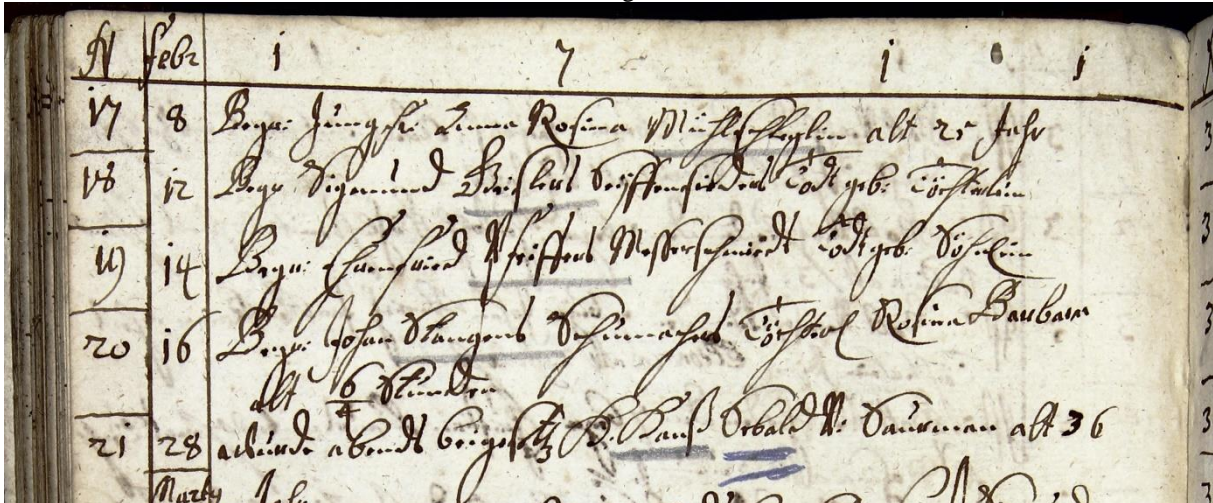 N Febr 1 7 1 1
17 8 Begr: Jungfr: Anna Rosina Mühlschleglin alt 25 Jahr
18 12 Begr Sigmund Geislers Seÿffensieders Todt geb: Töchterlin
19 14 Begr: Ehrenfried Pfeiffers Messerschmiedt Todt geb: Söhnlin
20 16 Begr: Johan Stangens Schumachers Töchterl Rosina Barbara
alt 6/4 Stunden
21 28 wurde abends beigesetz H. Hanß Sebald Saurman alt 36
Marty Jahr